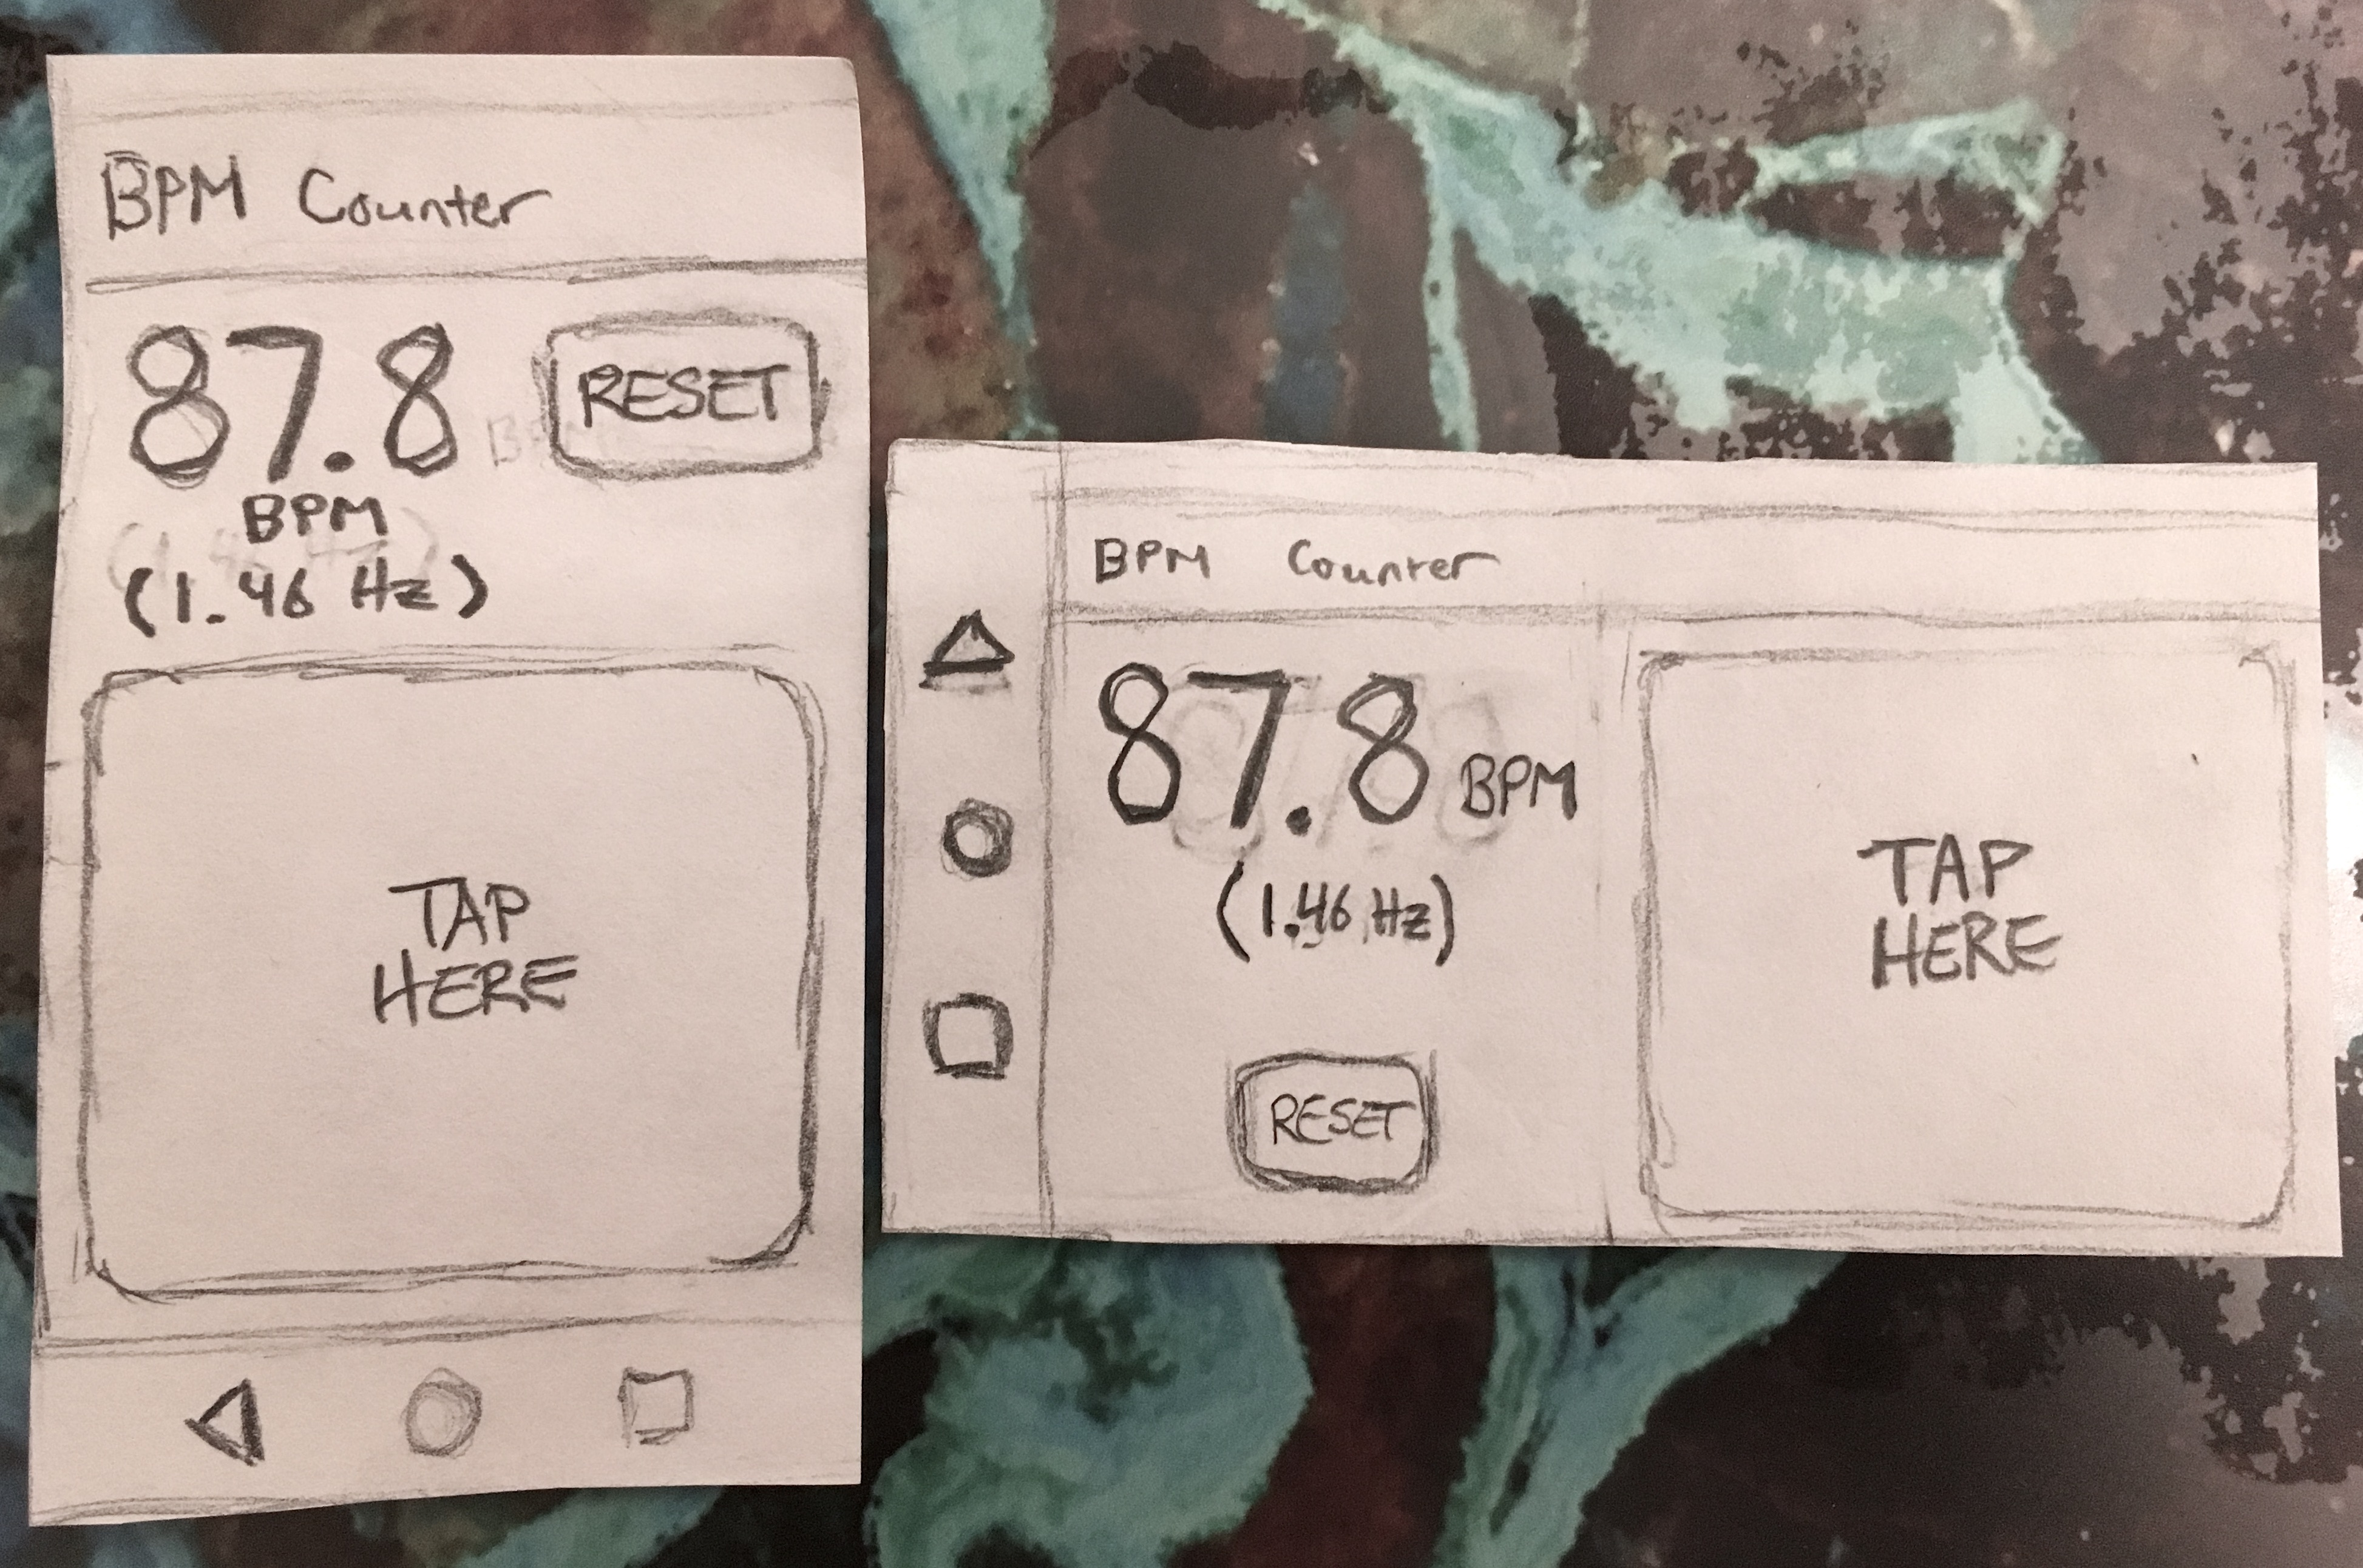 BPM Counter
87.8
RESET
BPM
(1.46 Hz)
TAP
HERE
BPM Counter
87.8 BPM
(1.46 Hz)
RESET
TAP
HERE